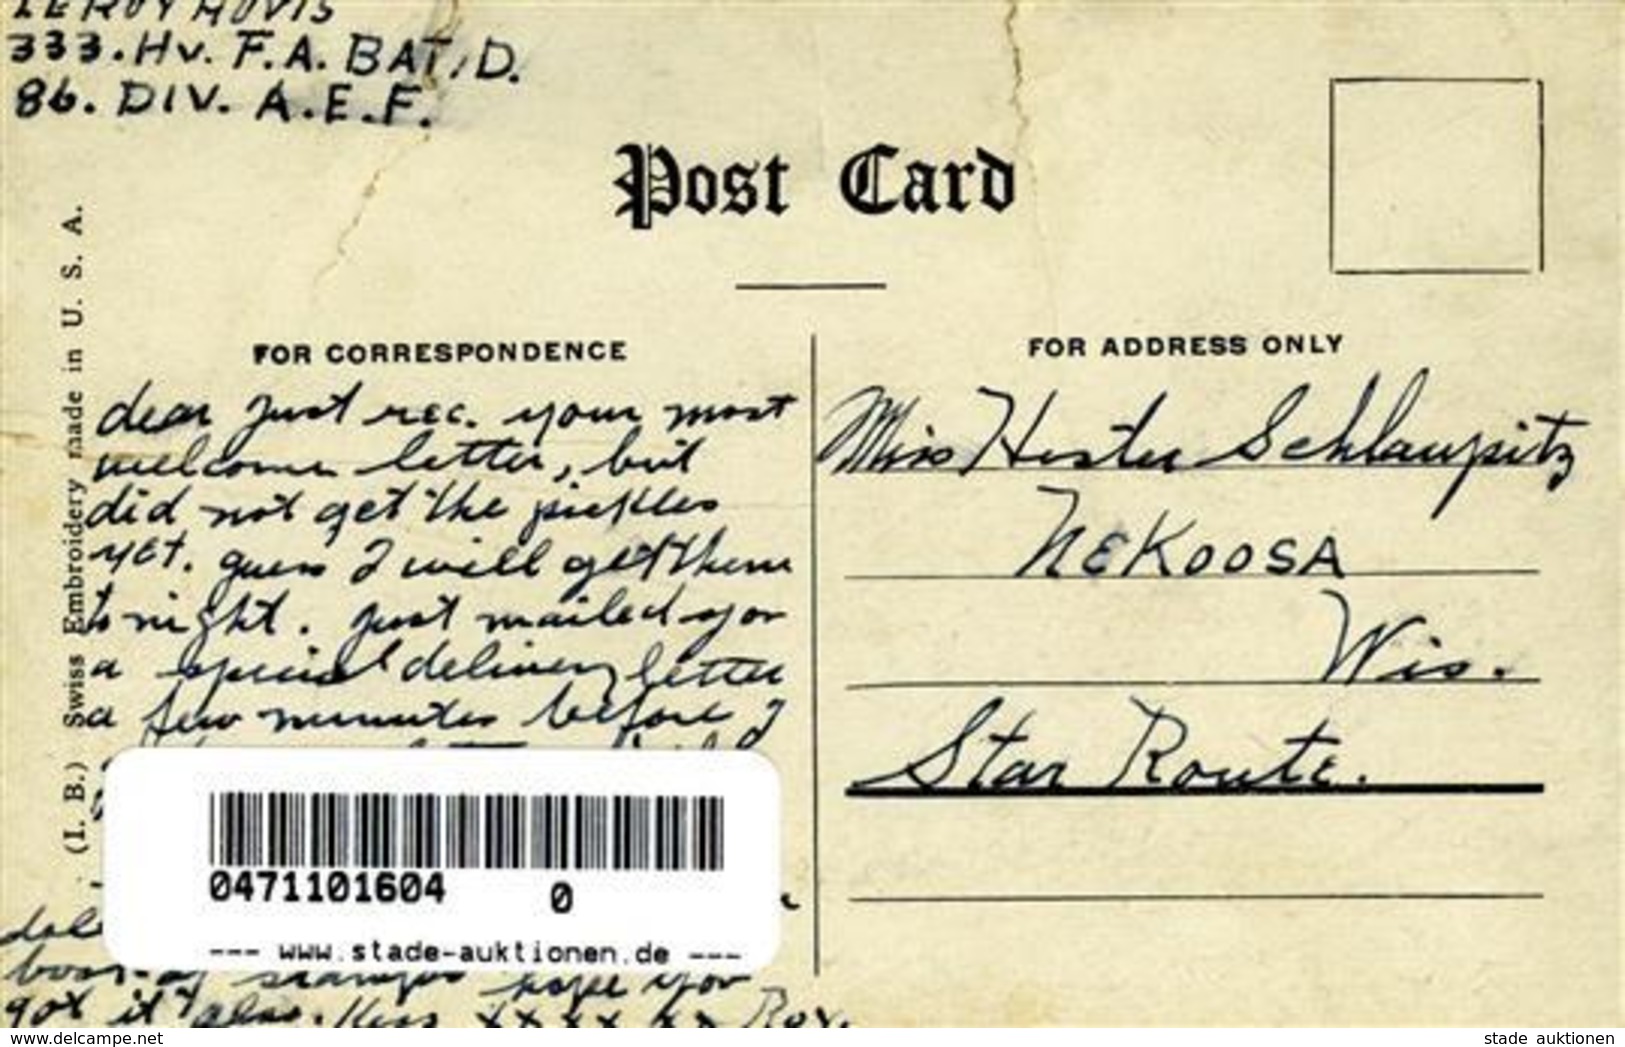 LEROY HOVIS
333. Hv. F.A. BAT. D.
86. DIV. A.E.F.
Post Card
(I. B.) Swiss Embroidery made in U. S. A.
FOR CORRESPONDENCE
dear Just rec. your most
welcome letter, but
did not get the pickles
yet. guess I will get them
to night. Just mailed you
a special delivery letter
a few minutes before I
book of stamps hope you
got it also. Kiss xxxx xx Roy.
FOR ADDRESS ONLY
Miss Hester Schlaupitz
NEKOOSA
Wis.
Star Route.
0471101604 0
--- www.stade-auktionen.de ---
www.delcampe.net
stade auktionen